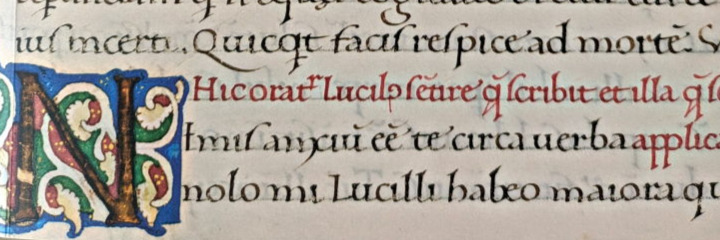 incerti. Quicqt facis respice ad mortē.
Hic orat Lucilꝑ sētire q̄ scribit et illa q̄
NImis anxiū eē te circa uerba applic
nolo mi Lucilli habeo maiora qu